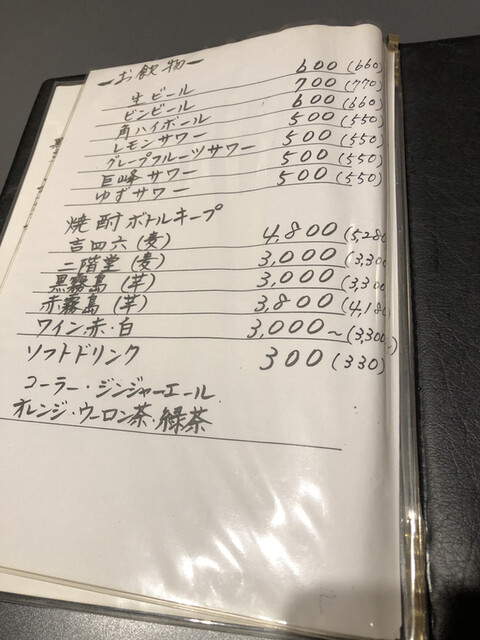 ーお飲物ー
生ビール 600(660)
ビンビール 700(770)
角ハイボール 600(660)
レモンサワー 500(550)
グレープフルーツサワー 500(550)
巨峰サワー 500(550)
ゆずサワー 500(550)
焼酎ボトルキープ
吉四六(麦) 4,800(5,280
二階堂(麦) 3,000(3,300
黒霧島(芋) 3,000(3,300
赤霧島(芋) 3,800(4,180
ワイン・赤・白 3,000〜(3,300)
ソフトドリンク 300(330)
コーラー・ジンジャーエール
オレンジ・ウーロン茶・緑茶